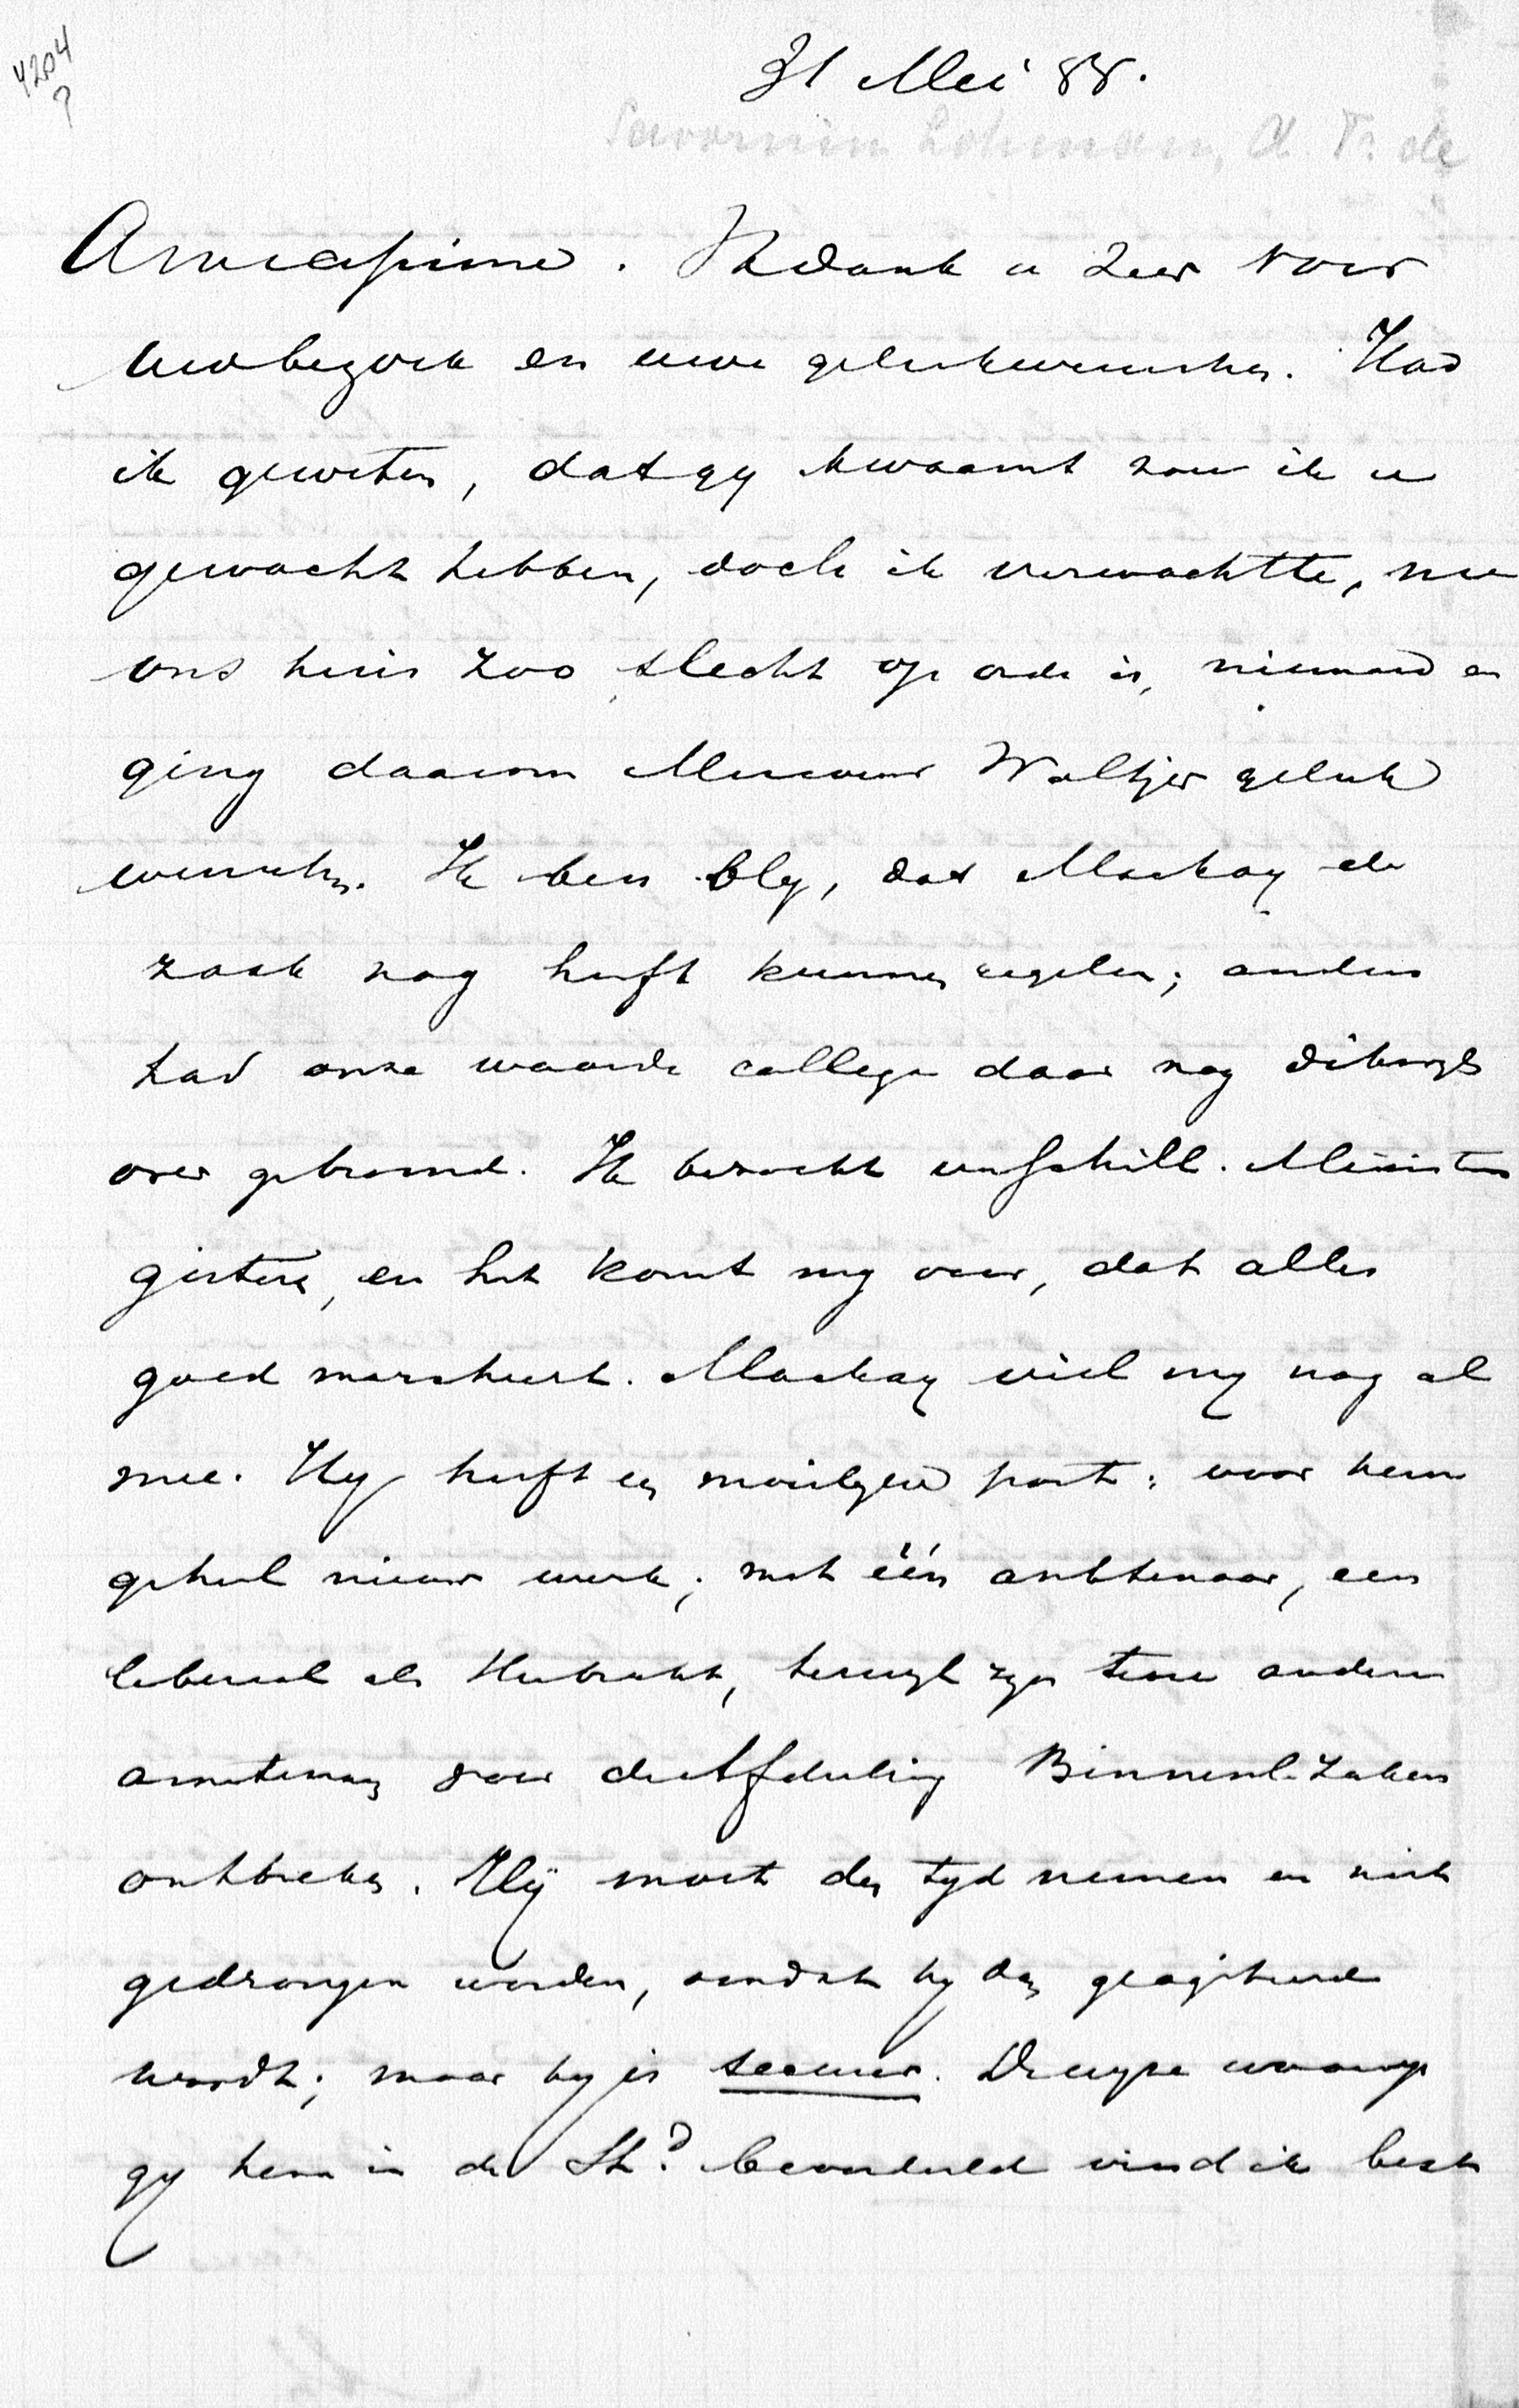 4204
?
31 Mei 88.
Savornin Lohman, A. F. de
Amicissime. Ik dank u zeer voor
uw bezoek en uwe gelukwenschen. Had
ik geweten, dat gy kwaamt zou ik u
gewacht hebben, doch ik verwachtte, nu
ons huis zoo slecht op orde is, niemand en
ging daarom Mevrouw Woltjer geluk
wenschen. Ik ben bly, dat Mackay de
zaak nog heeft kunnen regelen; anders
had onze waarde collega daar nog dikwyls
over gebromd. Ik bezocht verschill. Ministers
gisteren, en het komt my voor, dat alles
goed marcheert. Mackay viel my nog al
mee. Hy heeft een moeilyken post: voor hem
geheel nieuw werk; met één ambtenaar, een
liberaal als Hubrecht, terwyl zyn twee andere
ambtenaren voor de Afdeeling Binnenl. Zaken
ontbreken. Hij moet den tyd nemen en niet
gedrongen worden, omdat hy dan geagiteerd
wordt; maar hy is trouw. De wyze waarop
gy hem in de St.d beoordeeld vind ik best